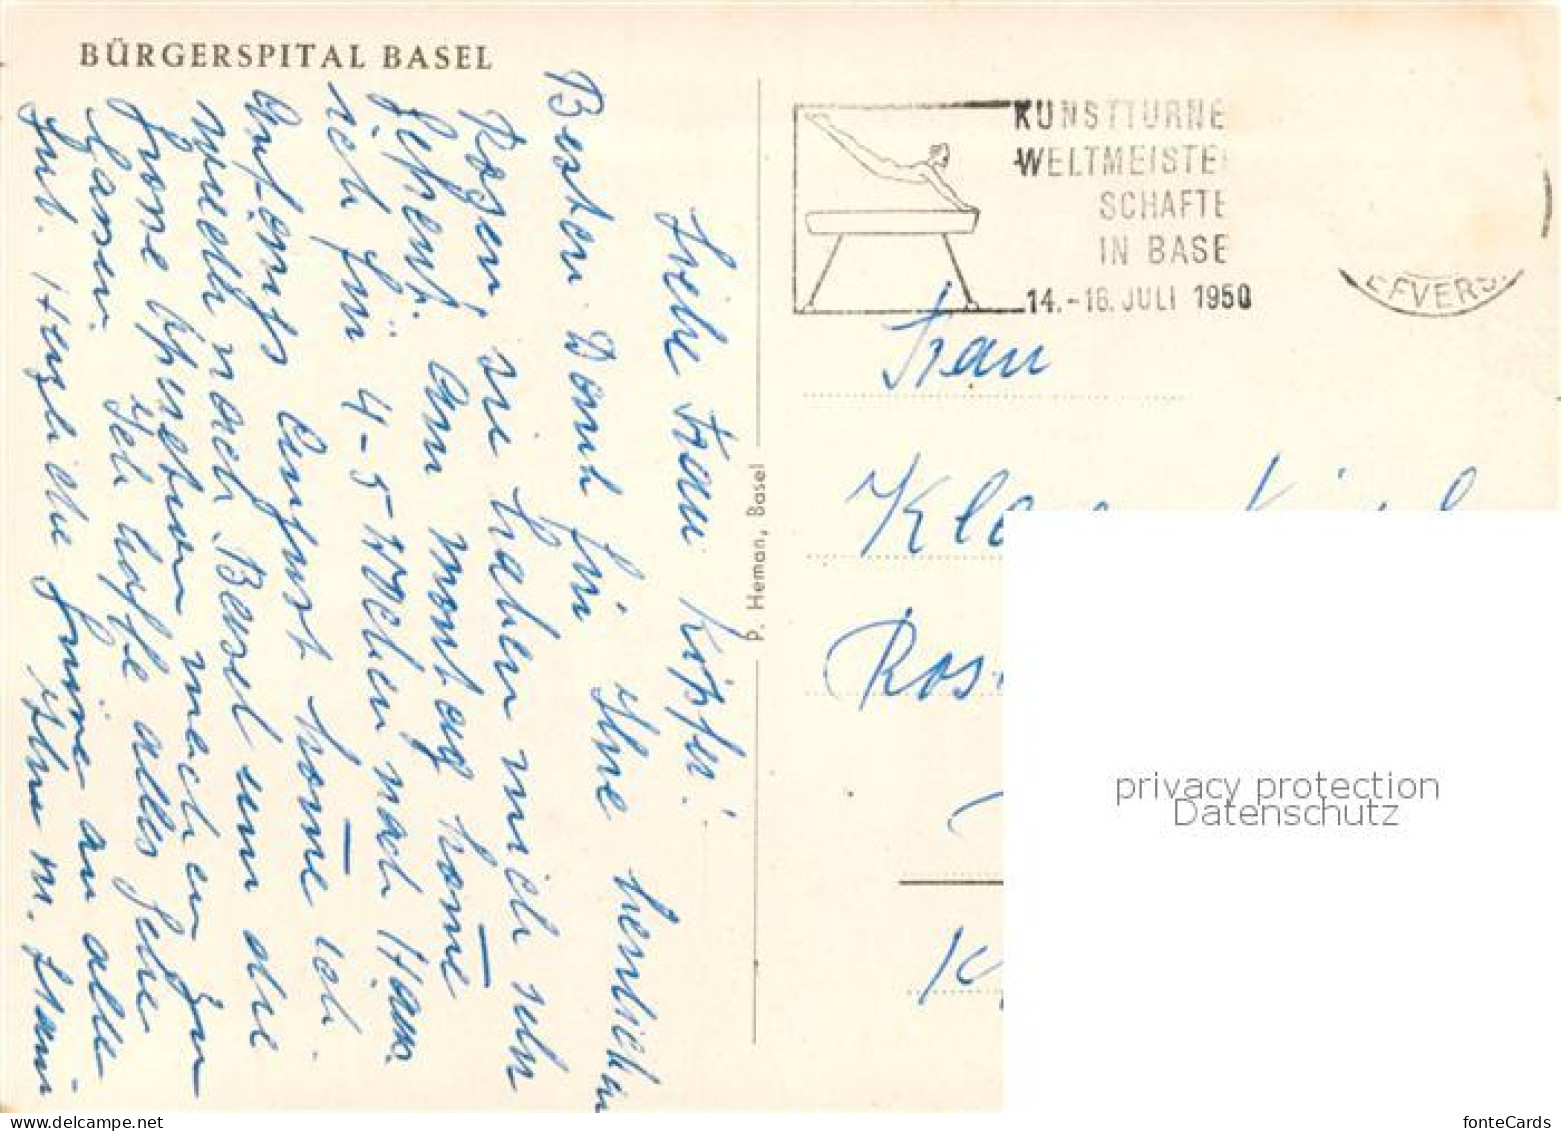 BÜRGERSPITAL BASEL
Liebe Frau Köpfer!
Besten Dank für Ihre herrlichen
Rosen, sie haben mich sehr
gefreut. Am Montag kome
ich für 4-5 Wochen nach Haus.
Anfangs August kome ich
wieder nach Basel um die
grosse Operation machen zu
lassen. Ich hoffe alles gehe
gut. Herzliche Grüsse an alle
Ihre M.
P. Heman, Basel
KUNSTTURNE
WELTMEISTE
SCHAFTE
IN BASE
14.-16. JULI 1950
Frau
Ros
privacy protection
Datenschutz
delcampe.net
fonteCards